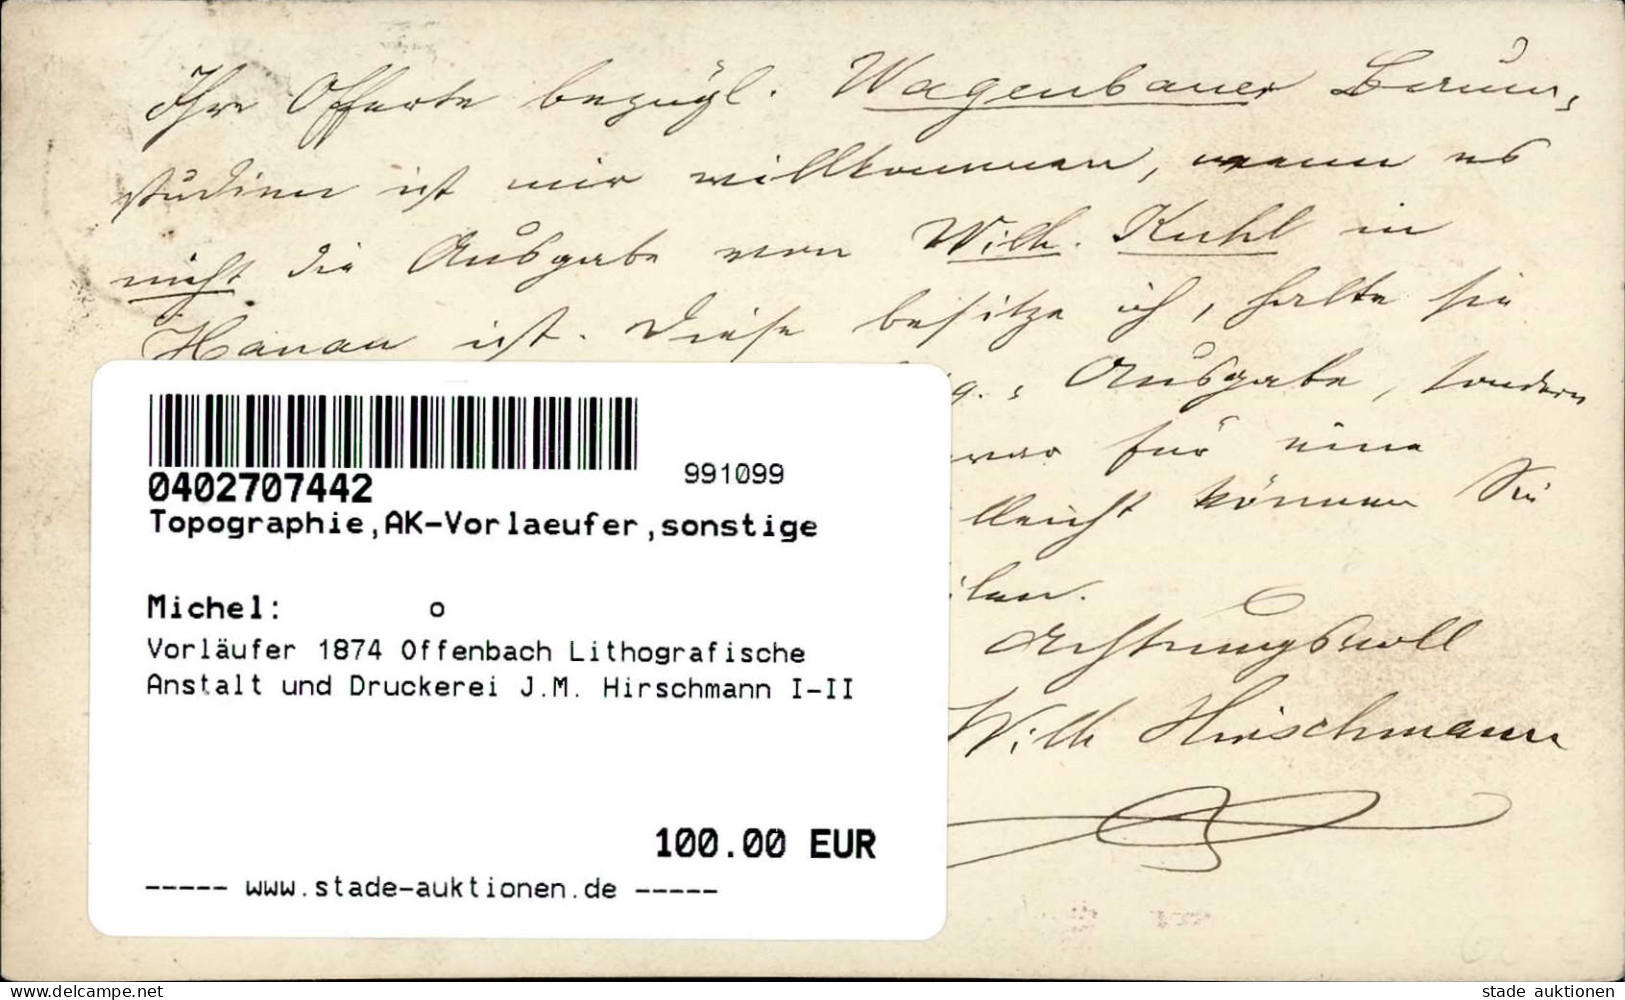 Ihre Offerte bezügl. Wagenbauer Baum,
studien ist mir willkommen, wenn es
nicht die Ausgabe von Wilh. Kuhl in
Hanau ist. Diese besitze ich, halte sie
Ausgabe, sondern
für eine
lleicht können Sie
ilen.
Achtungsvoll
Wilh Hirschmann
0402707442
991099
Topographie,AK-Vorlaeufer,sonstige
Michel: o
Vorläufer 1874 Offenbach Lithografische
Anstalt und Druckerei J.M. Hirschmann I-II
100.00 EUR
----- www.stade-auktionen.de -----
www.delcampe.net
stade auktionen